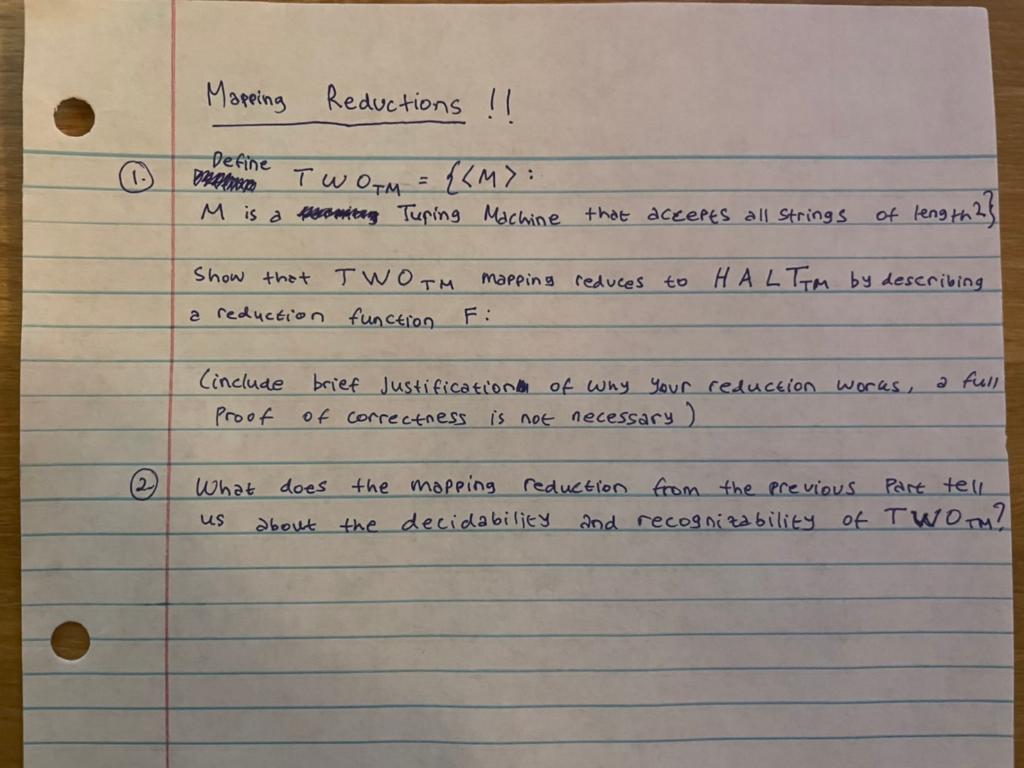 Mapping Reductions !!
① Define TWO_TM = {<M> :
M is a Turing Machine that accepts all strings of length 2}
Show that TWO_TM mapping reduces to HALT_TM by describing
a reduction function F:
(include brief Justification of why your reduction works, a full
Proof of correctness is not necessary)
② What does the mapping reduction from the previous Part tell
us about the decidability and recognizability of TWO_TM?